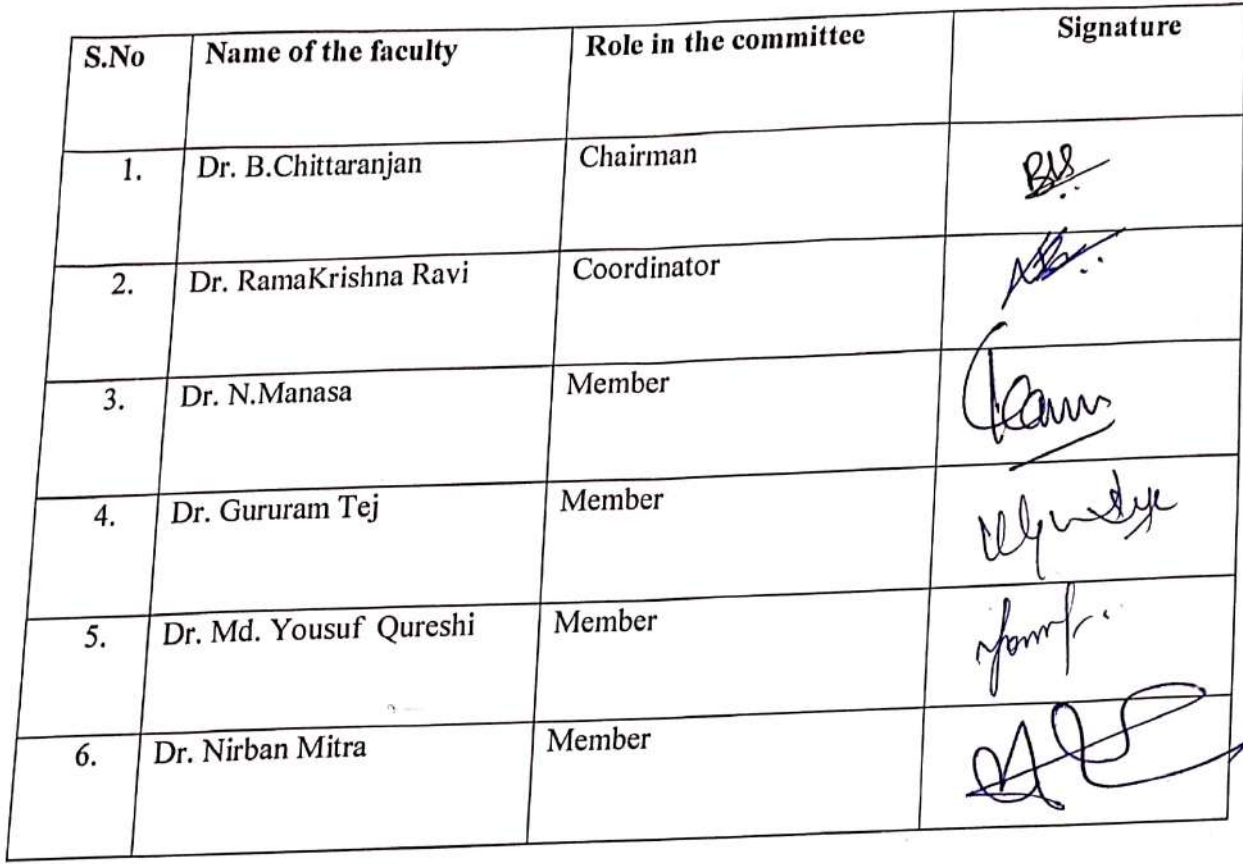 S.No Name of the faculty Role in the committee Signature
1. Dr. B.Chittaranjan Chairman
2. Dr. RamaKrishna Ravi Coordinator
3. Dr. N.Manasa Member
4. Dr. Gururam Tej Member
5. Dr. Md. Yousuf Qureshi Member
6. Dr. Nirban Mitra Member